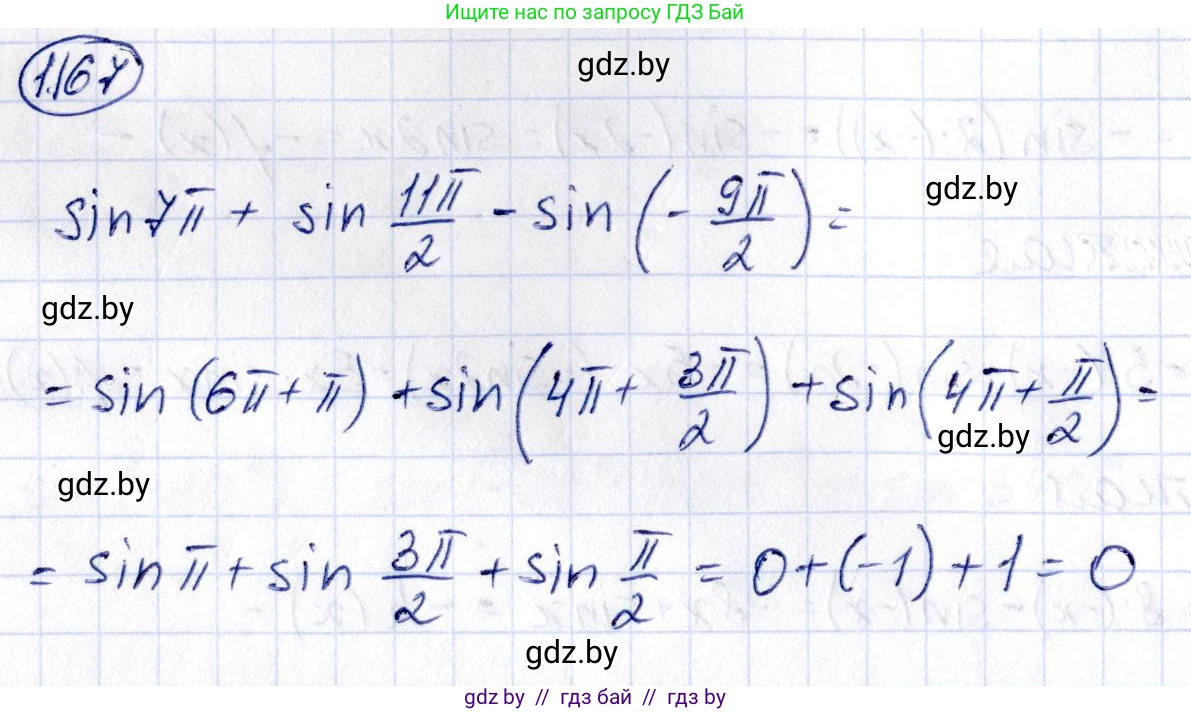 Ищите нас по запросу ГДЗ Бай
1.167
gdz.by
sin 7π + sin 11π/2 - sin (- 9π/2) =
gdz.by
gdz.by
= sin (6π + π) + sin (4π + 3π/2) + sin (4π + π/2) =
gdz.by
gdz.by
= sin π + sin 3π/2 + sin π/2 = 0 + (-1) + 1 = 0
gdz.by
gdz by // гдз бай // гдз by